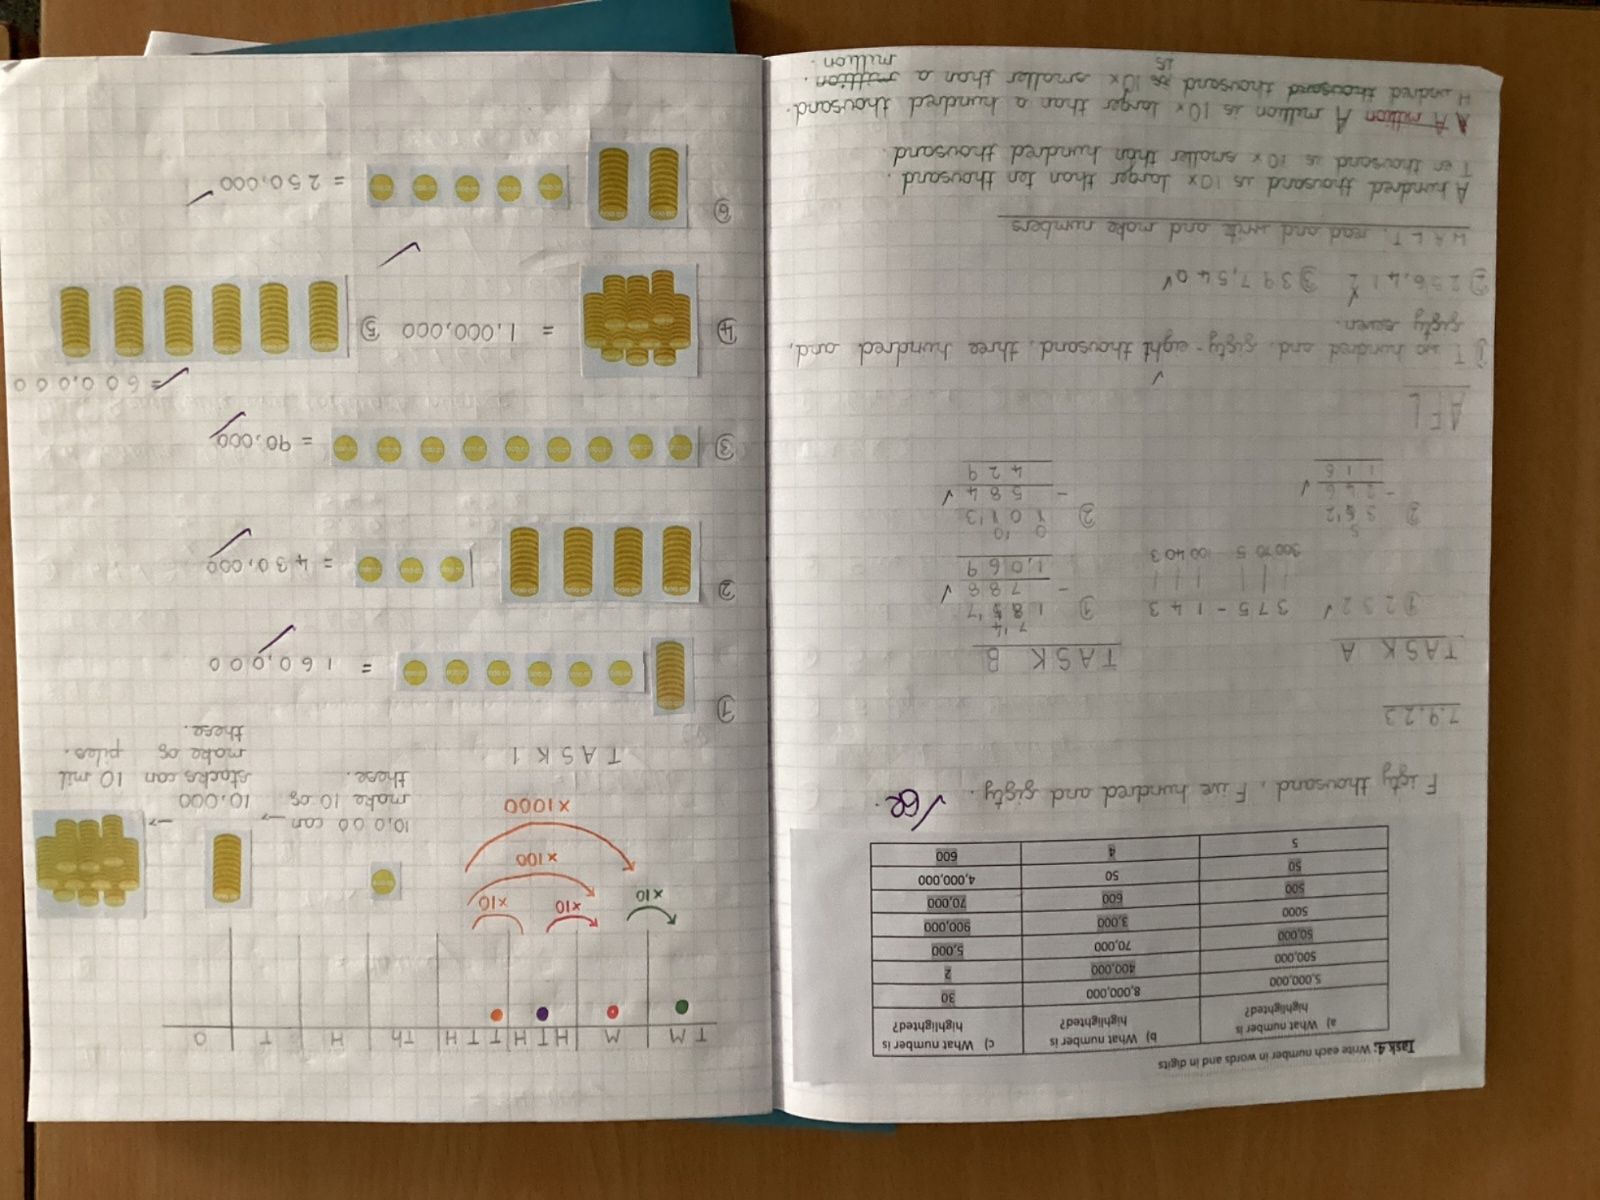 Task 4: Write each number in words and in digits
a) What number is highlighted? b) What number is highlighted? c) What number is highlighted?
5,000,000 8,000,000 30
500,000 400,000 2
50,000 70,000 5,000
5000 3,000 900,000
500 600 70,000
50 50 4,000,000
5 4 600
Fifty thousand, Five hundred and fifty.
7.9.23
TASK A TASK B
① 232 ✓ 375 - 143 ① 1857
300 70 5 100 40 3 - 788 ✓
1,069
② 362 ② 1013
- 246 ✓ - 584 ✓
116 429
AFL
① Two hundred and, fifty-eight thousand, three hundred and,
fifty seven.
② 256,412 ③ 397,540 ✓
WALT: read and write and make numbers
A hundred thousand is 10x larger than ten thousand.
Ten thousand is 10x smaller than hundred thousand.
A A million A million is 10x larger than a hundred thousand.
Hundred thousand is 10x smaller than a million.
million.
TM M HTH TTH Th H T O
×10 ×10 ×10
×100
×1000
10,000 can
make 10 of
these.
10,000
stacks can
make of
these.
10 mil
piles.
TASK 1
① = 160,000 ✓
② = 430,000 ✓
③ = 90,000 ✓
④ = 1,000,000 ✓
⑤ = 600,000 ✓
⑥ = 250,000 ✓